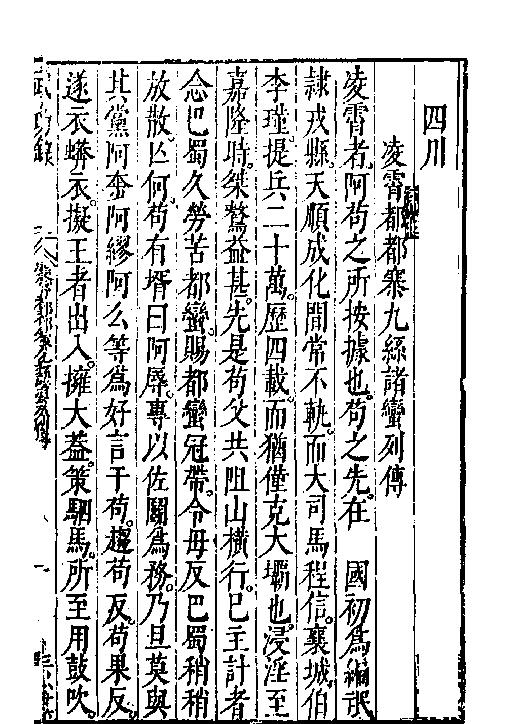 四川
凌霄都都寨九絲諸蠻列傳
凌霄者阿苟之所按據也苟之先在　國初爲編氓
隷戎縣天順成化間常不軌而大司馬程信襄城伯
李瑾提兵二十萬歷四載而猶僅克大壩也浸淫至
嘉隆時桀驁益甚先是苟父共阻山橫行已主計者
念巴蜀久勞苦都蠻賜都蠻冠帶令毋反巴蜀稍稍
放散亡何苟有壻曰阿辱專以佐鬭爲務乃旦莫與
其黨阿峑阿繆阿么等爲好言干苟趨苟反苟果反
遂衣蟒衣擬王者出入擁大葢策駟馬所至用鼓吹